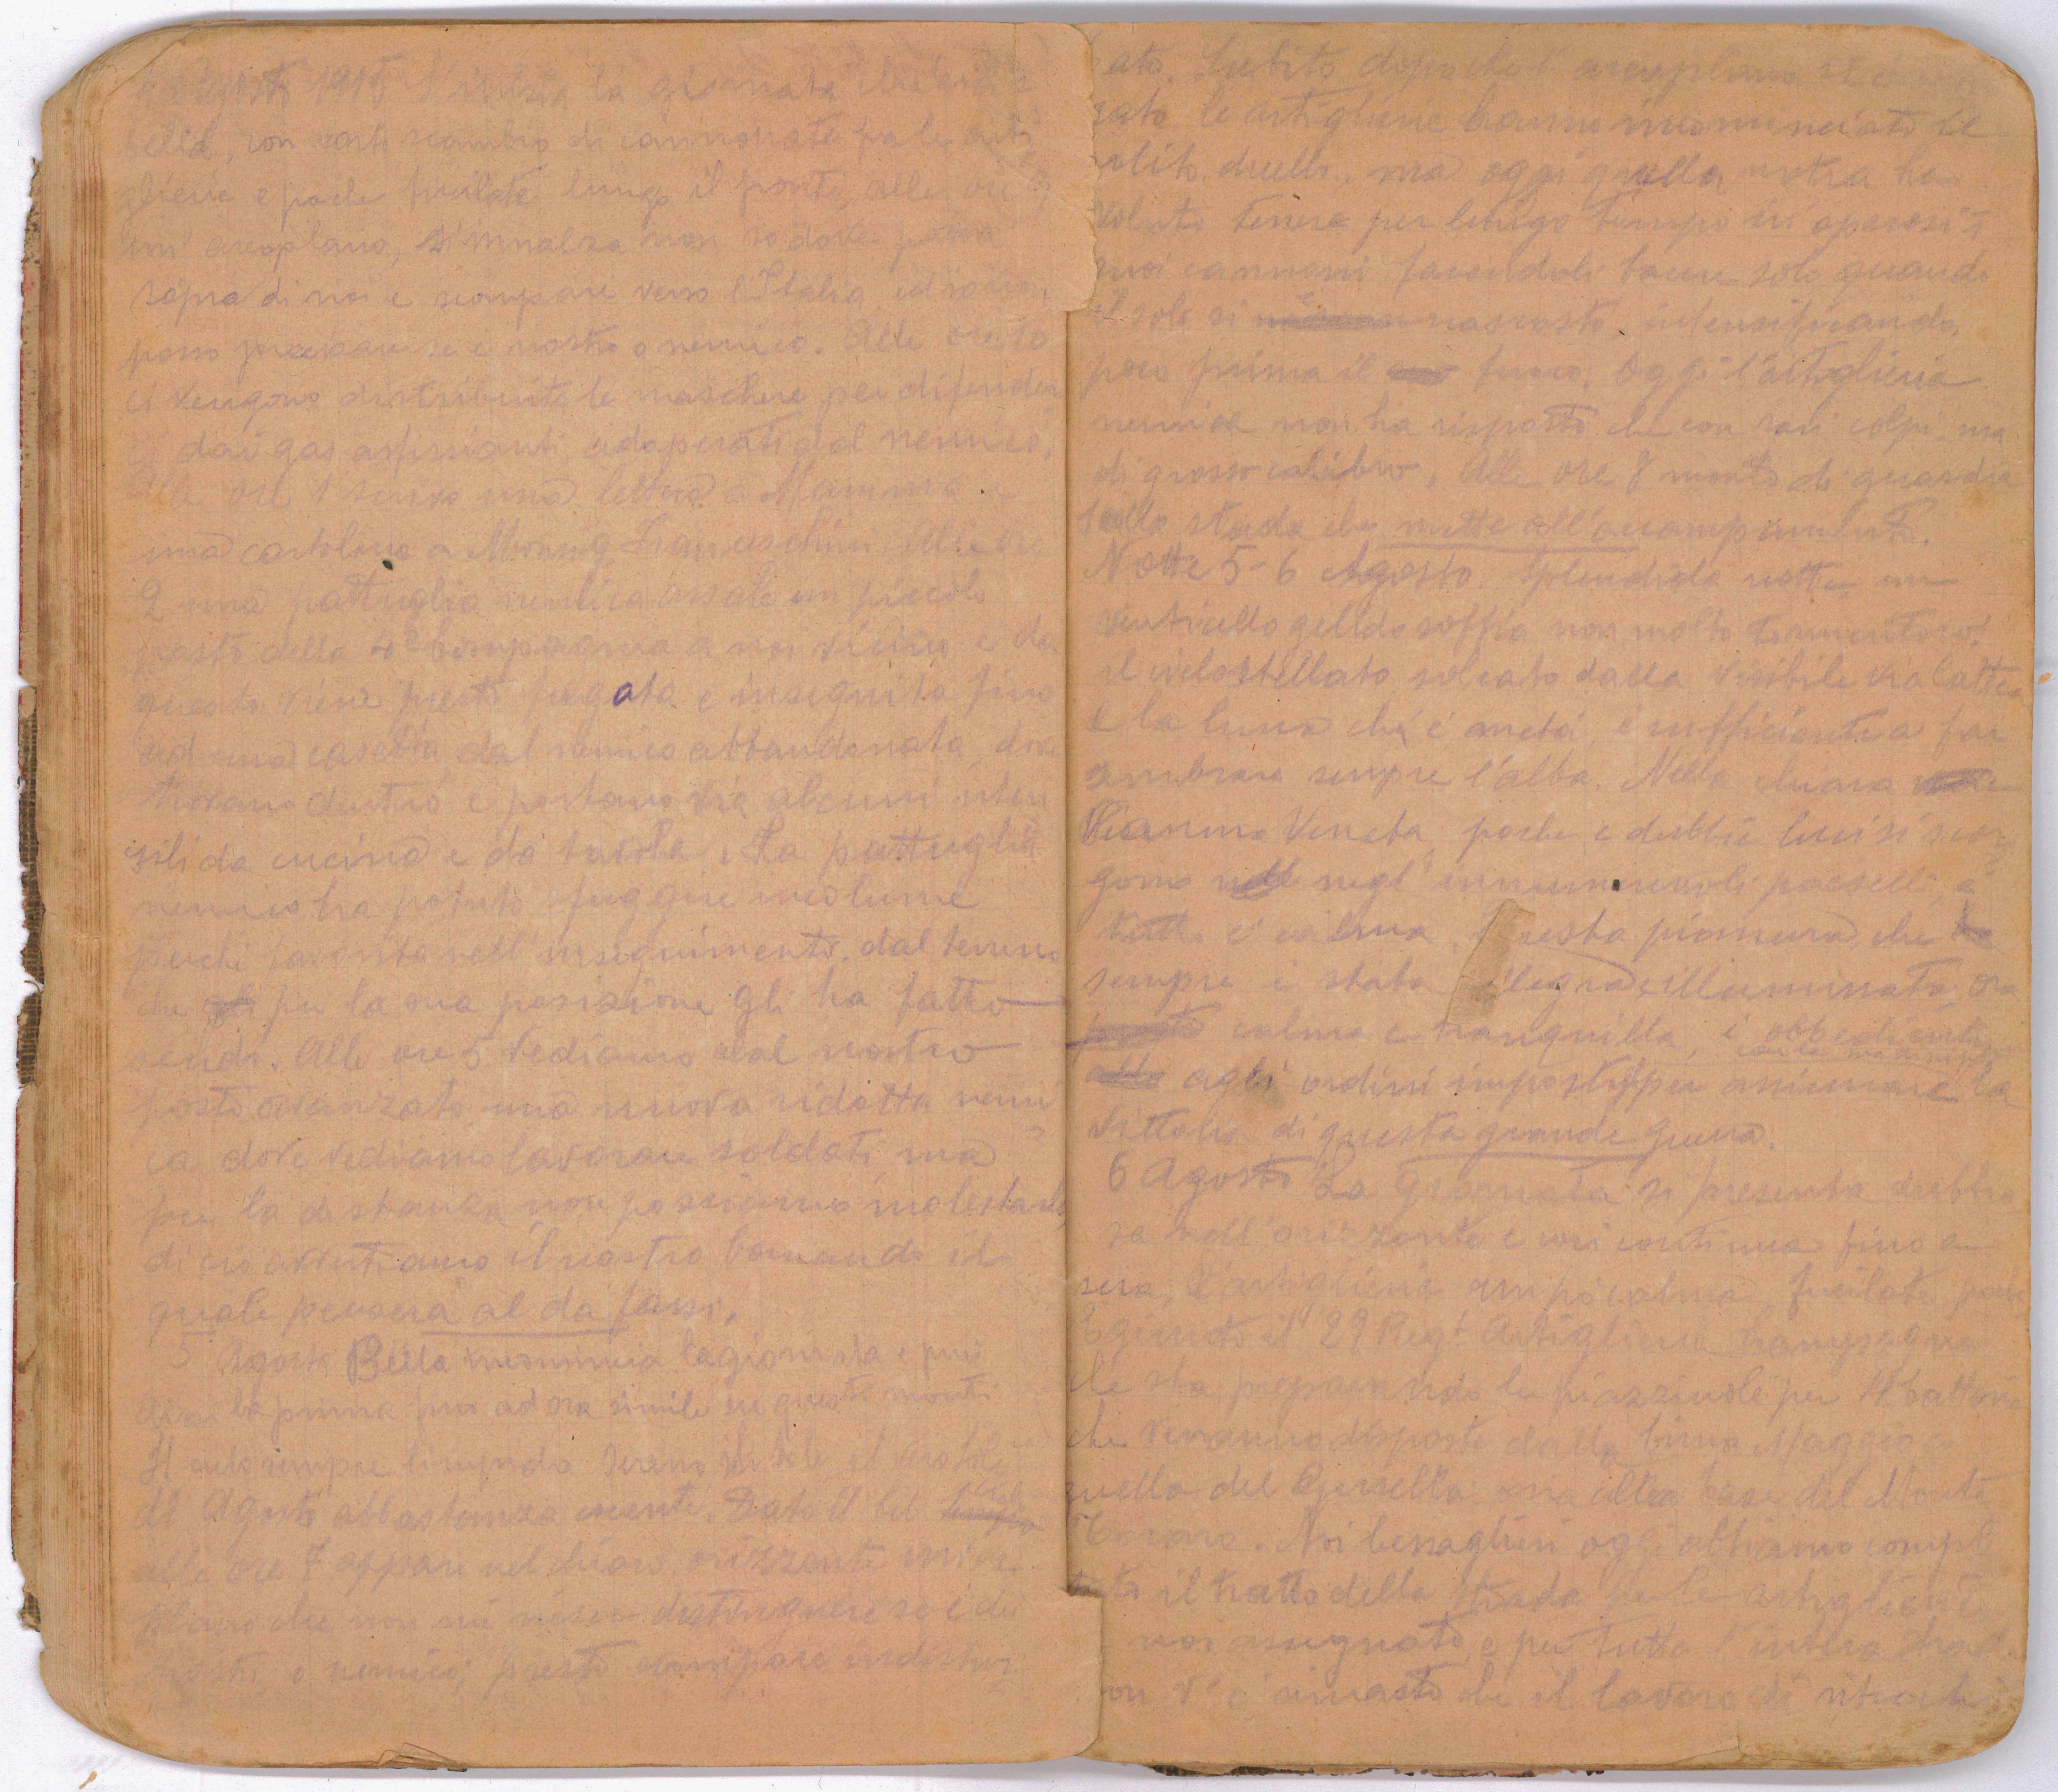 Agosto 1915 S'inizia la giornata
bella, con scambio di cannonate fra le arti
glierie e poche fucilate lungo il fronte, alle ore 9
un' areoplano, s'innalza non so dove passa
sopra di noi e scompare verso l'Italia ed io non
posso precisare se è nostro o nemico. Alle ore 10
ci vengono distribuite le maschere per difender
ci dai gas asfissianti adoperati dal nemico.
Alle ore 1 scrivo una lettera a Mamma e
una cartolina a Franceschini. Alle ore
2 una pattuglia nemica assale un piccolo
posto della 4ª Compagnia a noi vicino e da
questo viene presto fugata e inseguita fino
ad una casetta dal nemico abbandonata, dove
trovano dentro e portano via alcuni uten
sili da cucina e da tavola. La pattuglia
nemica ha potuto sfuggire incolume
perchè favorita nell'inseguimento, dal terreno
che per la sua posizione gli ha fatto
scudo. Alle ore 5 vediamo dal nostro
posto avanzato una nuova ridotta nemi
ca dove vediamo lavorare soldati ma
per la distanza non possiamo molestarli,
di ciò avvertiamo il nostro Comando il
quale penserà al da farsi.
5 Agosto Bella incomincia la giornata e può
dirsi la prima fino ad ora simile su questi monti
Il cielo sempre limpido sereno il sole
di Agosto abbastanza cocente. Dato il bel
alle ore 7 appare nel chiaro orizzonte un' areo
plano che non mi riesce distinguere se è dei
nostri o nemico; presto scompare indistur
bato. Subito dopo che l'areoplano si
le artiglierie hanno incominciato il
solito duello, ma oggi quella nostra ha
voluto tenere per lungo tempo in operosità
suoi cannoni facendoli tacere solo quando
il sole si nascosto intensificando,
poco prima il fuoco. Oggi l'artiglieria
nemica non ha risposto che con rari colpi, ma
di grosso calibro. Alle ore 8 monto di guardia
sulla strada che mette all'accampamento.
Notte 5-6 Agosto. Splendida notte, un
venticello gelido soffia non molto tormentoso,
il cielo stellato solcato dalla visibile via lattea
e la luna che è a metà, è sufficiente a far
sembrare sempre l'alba. Nella chiara
Pianura Veneta poche e dubbie luci si scor
gono negl'innumerevoli paeselli,
tutto è calma, questa pianura che
sempre è stata allegra e illuminata, ora
calma e tranquilla, è obbediente
agli ordini imposti per assicurare la
vittoria di questa grande guerra.
6 Agosto La giornata si presenta dubbio
sa nell'orizzonte e così continua fino a
sera, l'artiglieria un pò calma, fucilate poche
È giunto il 29 Regt Artiglieria Campagna
che sta preparando le piazzuole per 4 batterie
che verranno disposte dalla Cima Maggio a
quella del ma alla base del Monte
Corono. Noi bersaglieri oggi abbiamo comple
tato il tratto della strada per le artiglierie
a noi assegnato, e per tutto l'intero tratto
non v'è rimasto che il lavoro di ritocchi